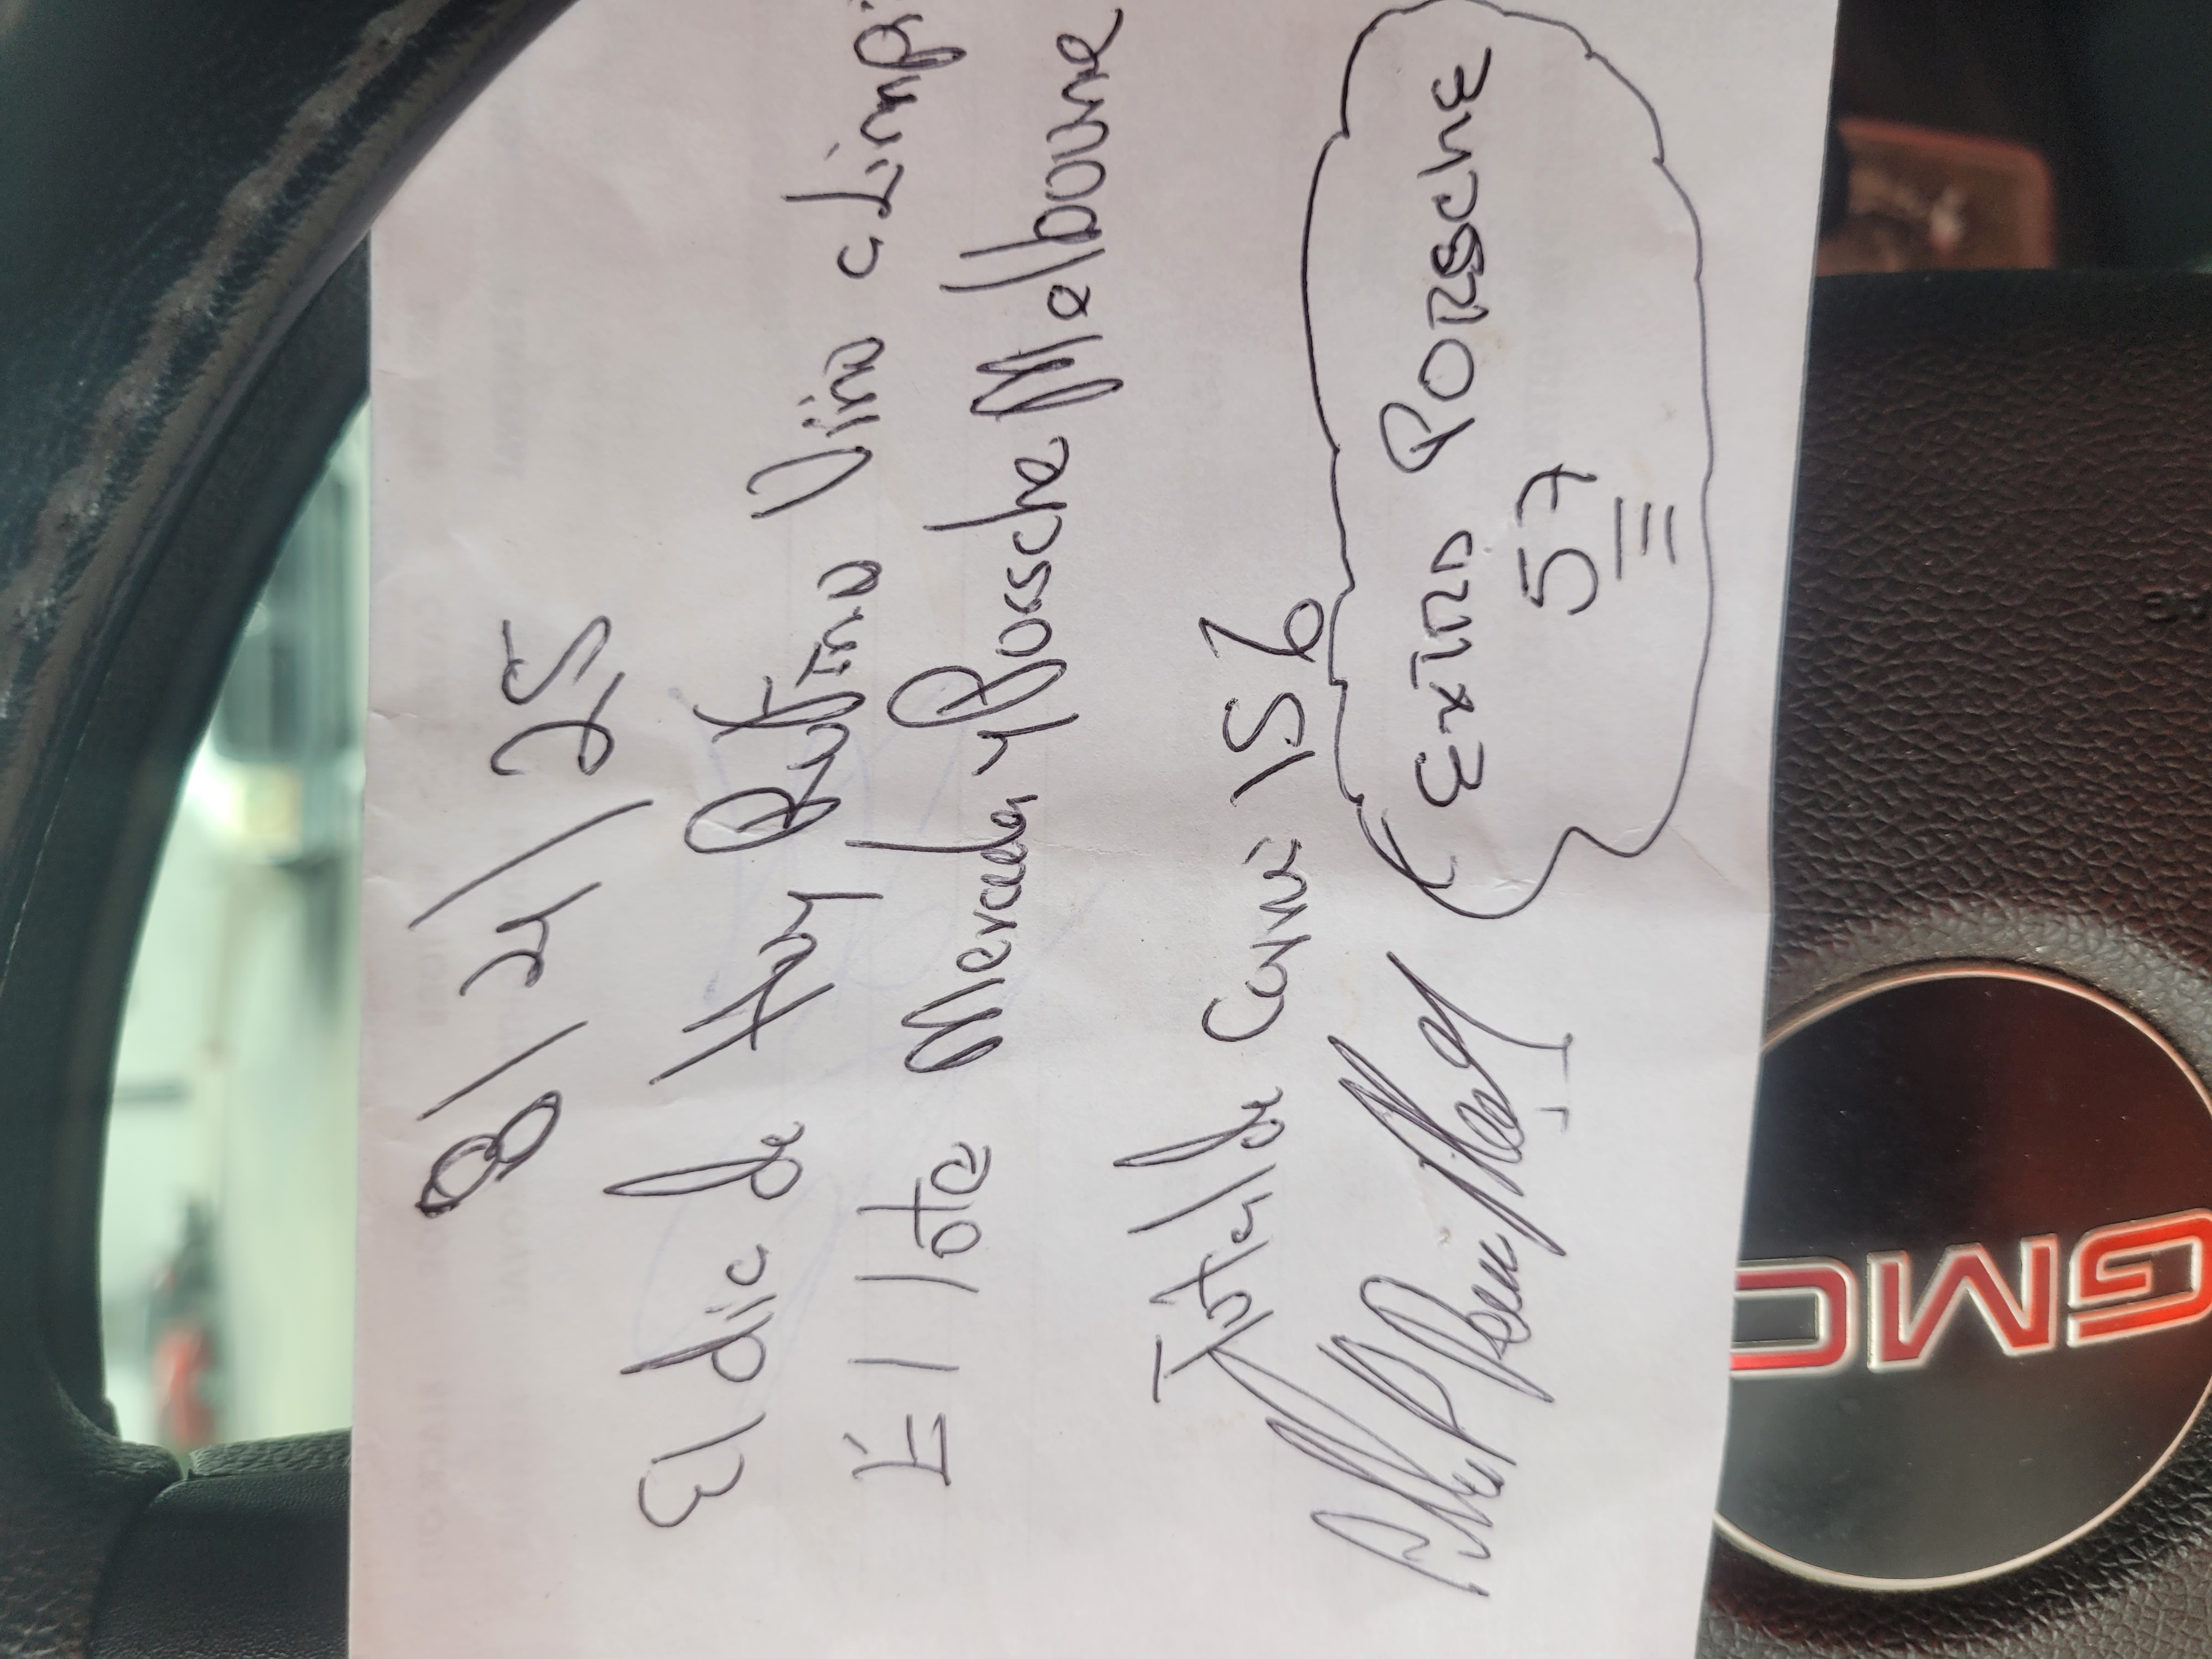 8/21/25
El dia de Hoy Rufino Vino a Limpi
El lote Mercedes y Porsche Melbourne
Total de Carros 156
EXTRA PORSCHE
57
GMC